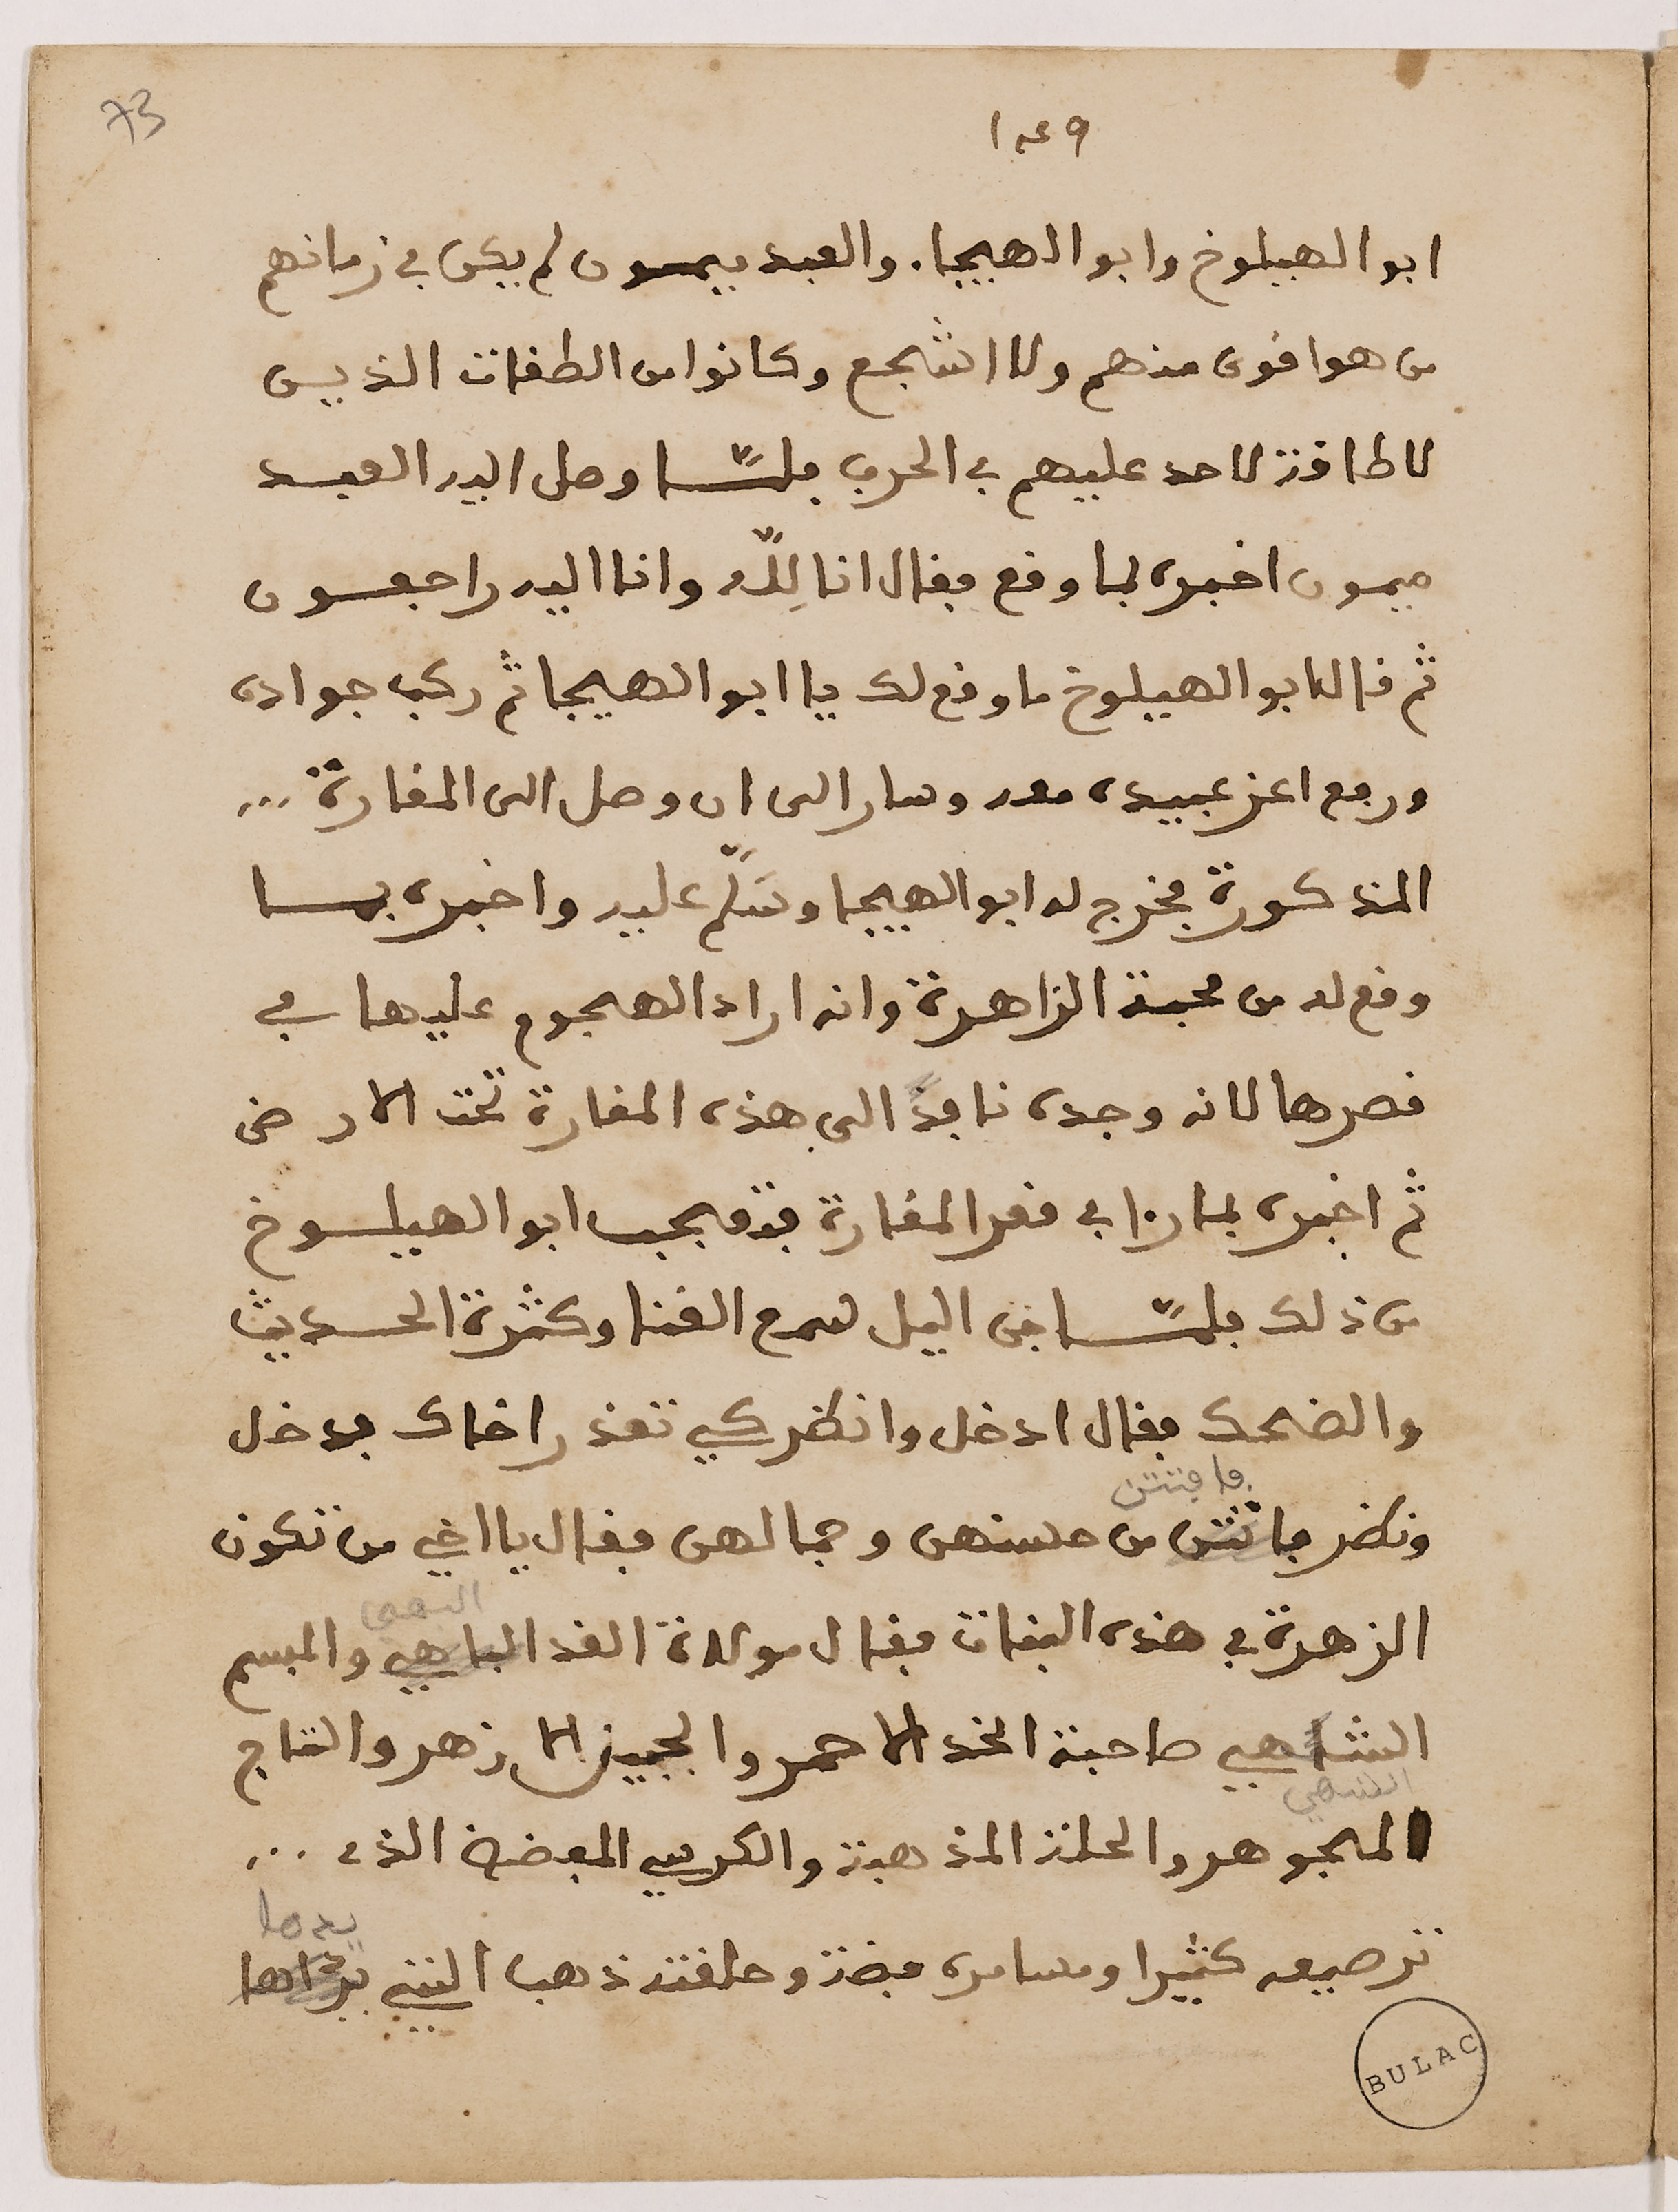 73
١٤٩
ابو الهيلوخ وابو الهيجا. والعبد ميمون لم يكن في زمانهم
من هو اقوى منهم ولا اشجع وكانوا من الطغات الذين
لا طاقة لاحد عليهم في الحرب فلمّا وصل اليه العبد
ميمون اخبره بما وقع فقال انا لِلّه وانا اليه راجعون
ثم قال ابو الهيلوخ ما وقع لك يا ابو الهيجا ثم ركب جواده
ورفع اعز عبيده معه وسار الى ان وصل الى المغارة ...
المذكورة فخرج له ابو الهيجا وسَلّم عليه واخبره بما
وقع له من محبة الزاهرة وانه اراد الهجوم عليها في
قصرها لانه وجده نافذً الى هذه المغارة تحت الارض
ثم اخبره بما راا في قعر المغارة فتعجب ابو الهيلوخ
من ذلك فلمّا جن اليل سمع الغنا وكثرة الحديث
والضحك فقال ادخل وانظر كي تعذر اخاك فدخل
فافتتن
ونظر فاتتن من حسنهن وجمالهن فقال يا اخي من تكون
البهي
الزهرة في هذه البنات فقال مولاة القد الباهي والمبسم
الشاهي صاحبة الخد الاحمر والجبين الازهر والتاج
الشهي
المجوهر والحلة المذهبة والكرسي المعضم الذي ...
يدها
ترصيعه كثيرا ومسامره فضة وحلقته ذهب التي
BULAC